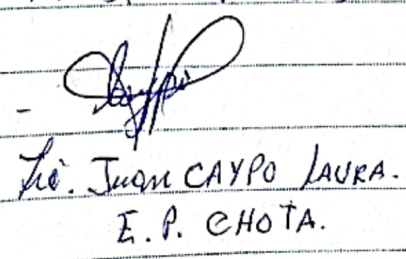 Lic. Juan CAYPO LAURA.
E. P. CHOTA.